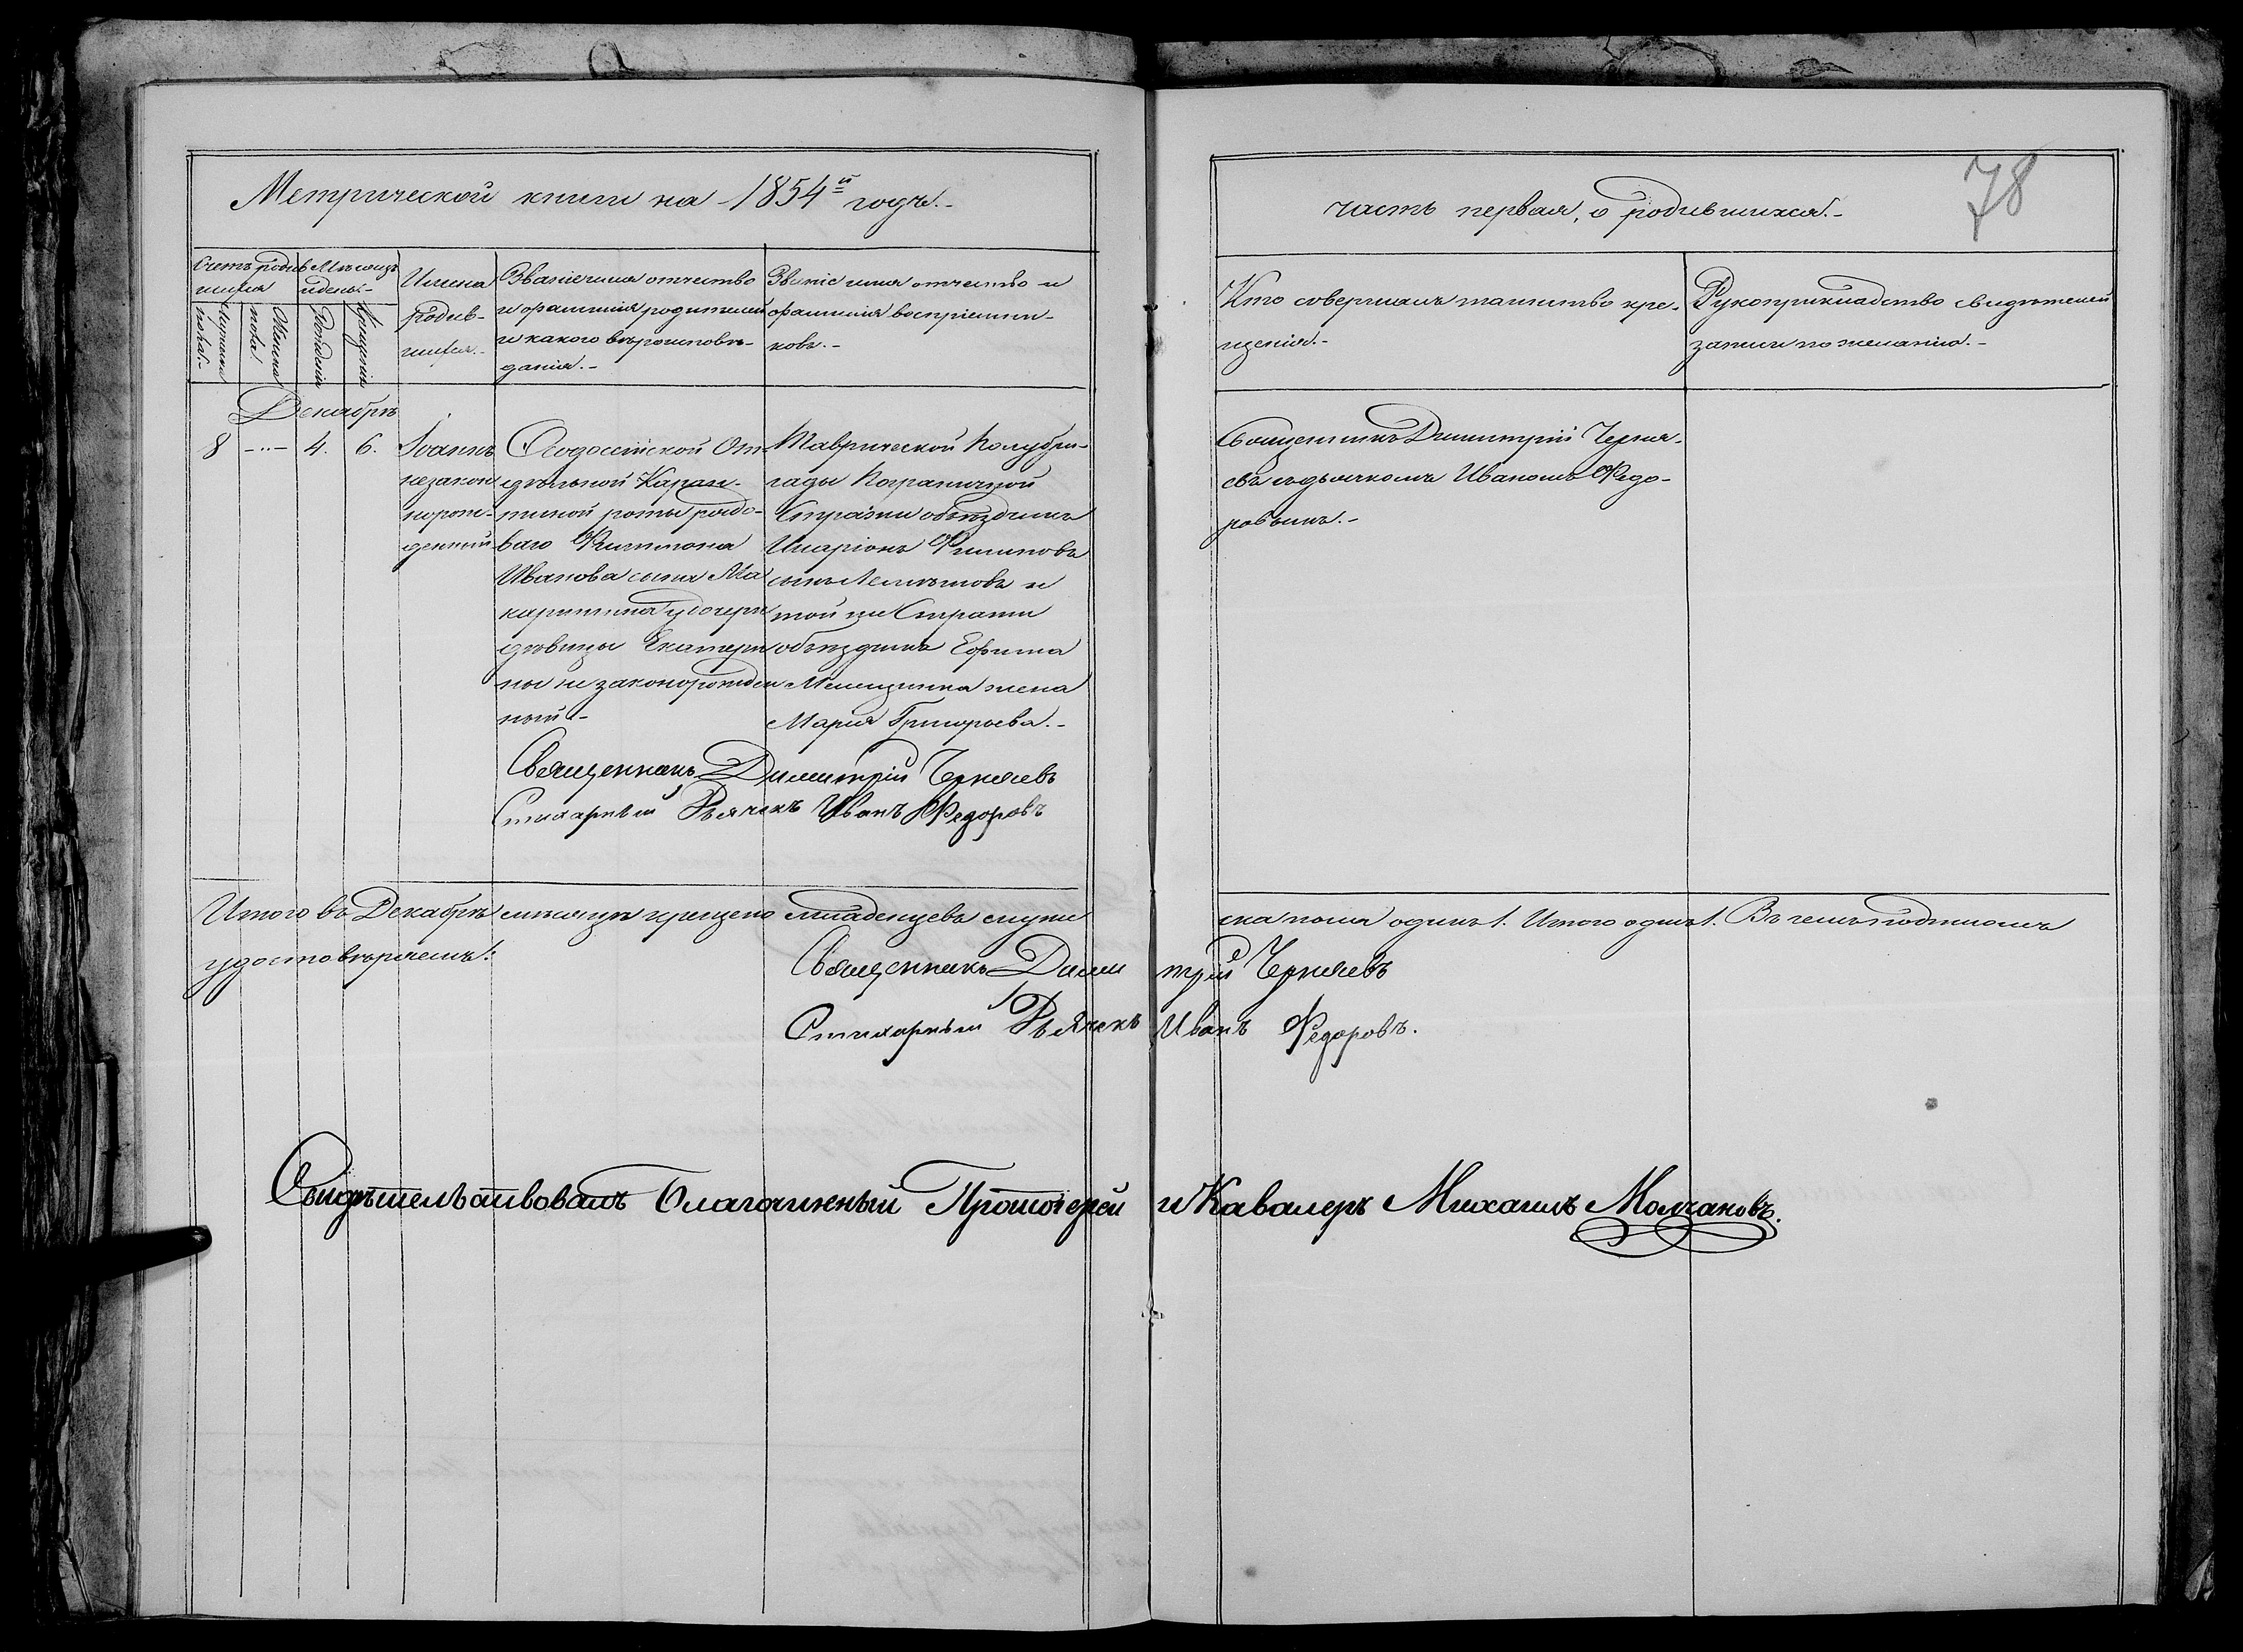 Метрической книги на 1854й годъ.-
часть первая, о родившихся.-
78
Счетъ родив
шихся
Мѣсяцъ
и день.-
Мужеска
пола.-
Женска
пола
Рожденія
Крещенія
Имена
Родив-
шихся.-
Званіе имя отчество
и фамилія родителей
и какого вѣроисповѣ-
данія.-
Званіе имя отчество и
фамилія воспріемни-
ковъ.-
Кто совершалъ таинство кре-
щенія.-
Рукоприкладство свидѣтелей
записи по желанію.-
Декабрь
8 -..- 4. 6.
Іоаннъ
незакон
норож-
денный
Ѳеодосійской От-
дѣльной Каран-
тинной роты рядо-
ваго Филимона
Иванова сына Ма
каришина у дочери
дѣвицы Екатери
ны незаконорожден
ный.-
Таврической Полубри-
гады Пограничной
Стражи объѣздчикъ
Иларіонъ Филиповъ
сынъ и
той же Стражи
объѣздчика Ефима
жена
Марія Григорьева.-
Священникъ Димитрій Черня-
евъ съ дьячкомъ Иваномъ Федо-
ровымъ.-
Священникъ Димитрій Черняевъ
Стихарный Дьячекъ Иванъ Федоровъ
Итого въ Декабрѣ мѣсяцѣ крещено младенцевъ муже
ска пола одинъ 1. Итого одинъ 1. Въ чемъ подписомъ
удостовѣряемъ:
Священникъ Димитрій Черняевъ
Стихарный Дьячекъ Иванъ Федоровъ.
Свидѣтельствовалъ Благочинный Протоіерей и Кавалеръ Михаилъ Молчановъ.